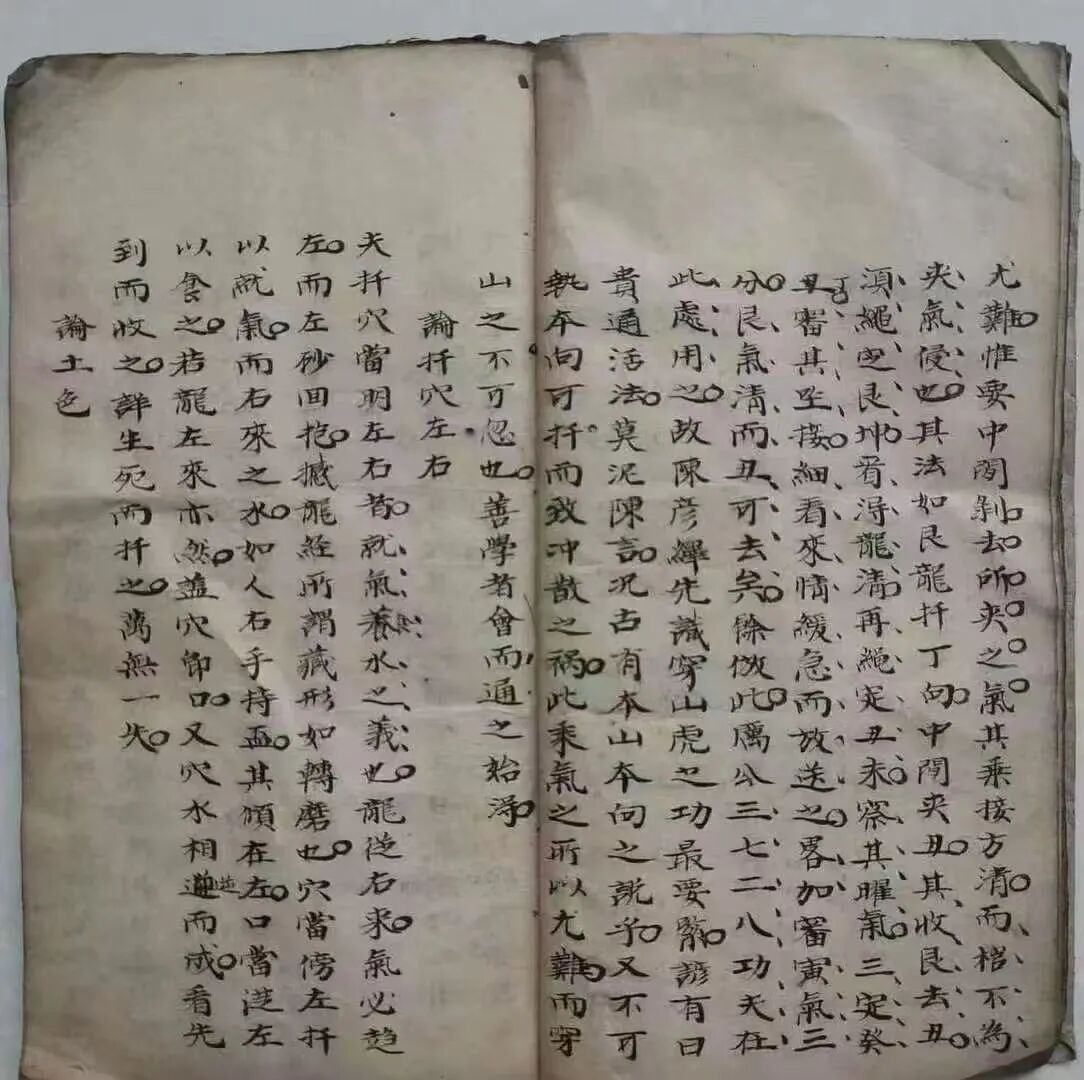 尤難惟要中間剝去所夾之氣其乘接方清而格不為
夾氣侵也其法如艮龍扦丁向中間夾丑其收艮去丑
須繩定艮坤看得龍清再繩定丑未察其曜氣三定癸
丁審其坐接細看來情緩急而放送之畧加審寅氣三
分艮氣清而丑可去矣餘倣此厲公三七二八功夫在
此處用之故陳彦繹先識穿山虎之功最要諺有曰
貴通活法莫泥陳言况古有本山本向之説乎又不可
執本向可扦而致冲散之禍此乘氣之所以尤難而穿
山之不可忽也善學者會而通之始得
論扦穴左右
夫扦穴當明左右皆就氣養水之義也龍從右來氣必趋
左而左砂回抱撼龍經所謂藏形如轉磨也穴當傍左扦
以就氣而右來之水如人右手持盃其傾在左口當從左
以食之若龍左來亦然盖穴即口又穴水相逆而成看先
到而收之詳生死而扦之萬無一失
論土色